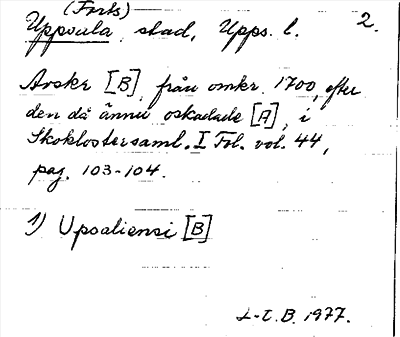 (Forts) 2.
Uppsala stad, Upps. l.
Avskr [B] från omkr. 1700, efter
den då ännu oskadade [A], i
Skoklostersaml. I Fol. vol. 44,
pag. 103-104.
1) Upsaliensi [B]
L-t. B. 1977.